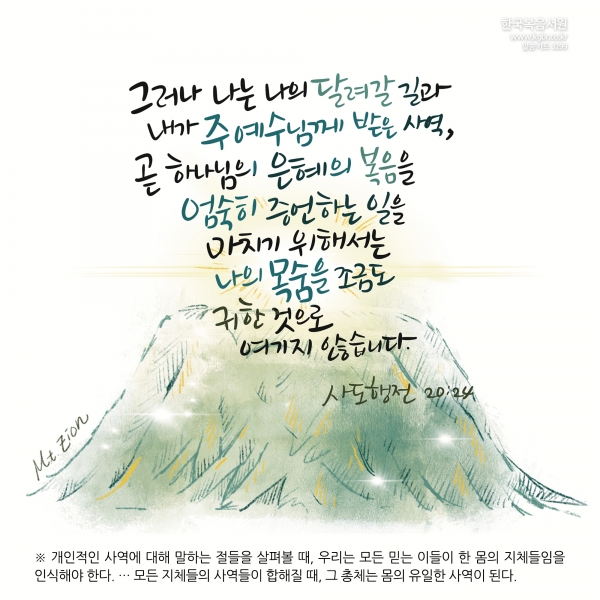 한국복음서원
www.kgbr.co.kr
그러나 나는 나의 달려갈 길과
내가 주 예수님께 받은 사역,
곧 하나님의 은혜의 복음을
엄숙히 증언하는 일을
마치기 위해서는
나의 목숨을 조금도
귀한 것으로
여기지 않습니다.
사도행전 20:24
Mt. Zion
※ 개인적인 사역에 대해 말하는 절들을 살펴볼 때, 우리는 모든 믿는 이들이 한 몸의 지체들임을
인식해야 한다. … 모든 지체들의 사역들이 합해질 때, 그 총체는 몸의 유일한 사역이 된다.